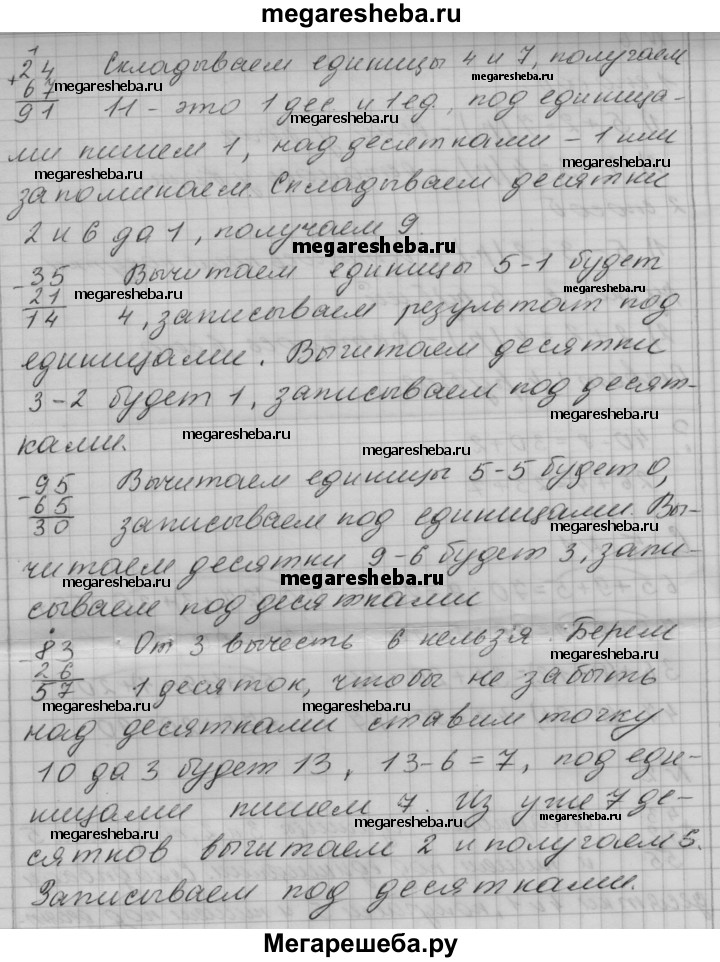 megaresheba.ru
1
+24 Складываем единицы 4 и 7, получаем
67 megaresheba.ru megaresheba.ru
91 11 - это 1 дес. и 1 ед., под единица-
ми пишем 1, над десятками - 1 или
megaresheba.ru megaresheba.ru
запоминаем. Складываем десятки
2 и 6 да 1, получаем 9.
megaresheba.ru
-35 Вычитаем единицы 5-1 будет
21 megaresheba.ru megaresheba.ru
14 4, записываем результат под
единицами. Вычитаем десятки
3-2 будет 1, записываем под десят-
megaresheba.ru megaresheba.ru
ками.
-95 Вычитаем единицы 5-5 будет 0,
65
30 записываем под единицами. Вы-
megaresheba.ru megaresheba.ru
читаем десятки 9-6 будет 3, запи-
megaresheba.ru
сываем под десятками
-83 От 3 вычесть 6 нельзя. Берем
26 megaresheba.ru megaresheba.ru
57 1 десяток, чтобы не забыть
над десятками ставим точку
10 да 3 будет 13, 13-6=7, под еди-
megaresheba.ru megaresheba.ru
ницами пишем 7. Из уже 7 де-
megaresheba.ru megaresheba.ru
сятков вычитаем 2 и получаем 5.
Записываем под десятками.
Мегарешеба.ру